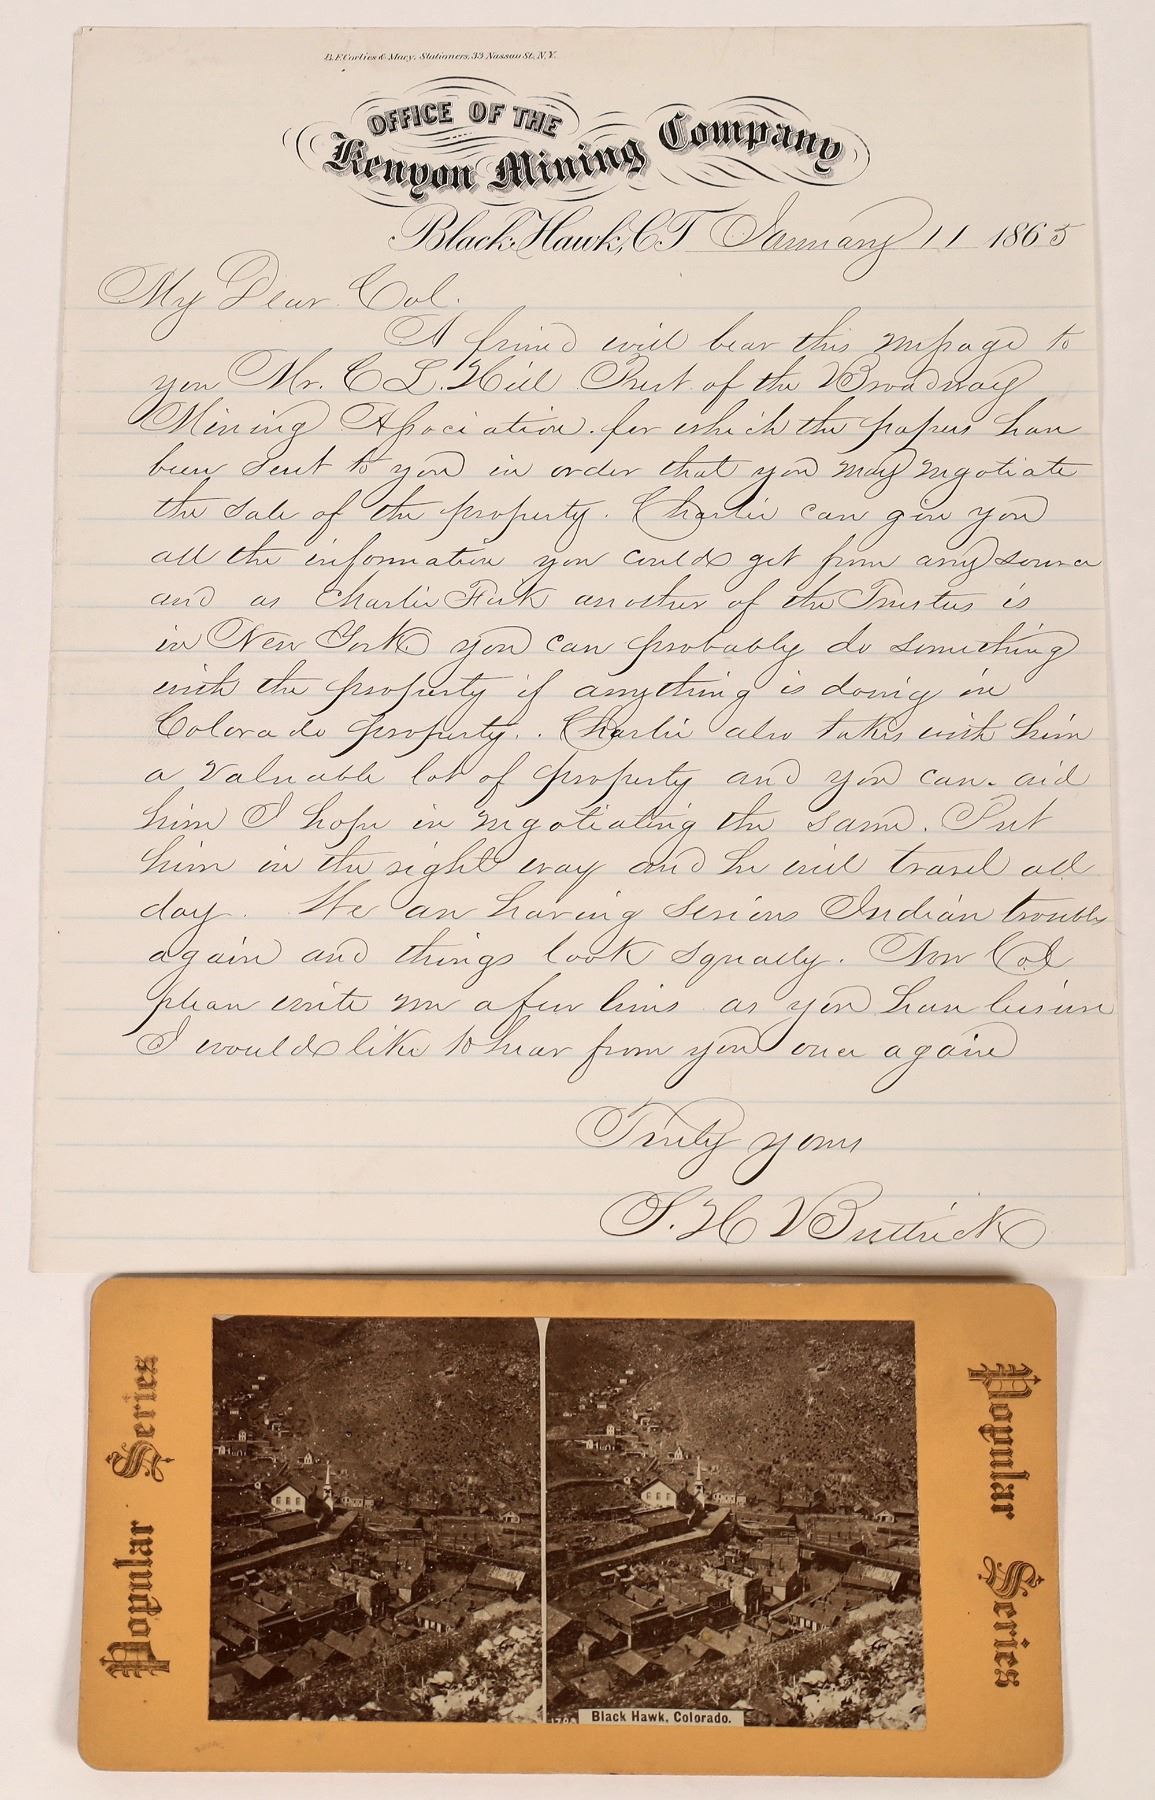 B.F. Corlies & Macy, Stationers, 33 Nassau St, N.Y.
OFFICE OF THE
Kenyon Mining Company
Black Hawk, C.T. January 11 1865
My Dear Col.
A friend will bear this message to
you Mr. C L. Hill Prest. of the Broadway
Mining Association. for which the papers have
been sent to you in order that you may negotiate
the sale of the property. Charlie can give you
all the information you could get from any source
and as Charlie Fisk another of the Trustees is
in New York you can probably do something
with the property if anything is doing in
Colorado property. Charlie also takes with him
a valuable lot of property and you can aid
him I hope in negotiating the same. Put
him in the right way and he will travel all
day. We are having serious Indian troubles
again and things look squally. Now Col
please write me a few lines as you have leisure
I would like to hear from you once again
Truly yours
S. H. Buttrick
Popular Series
Popular Series
Black Hawk, Colorado.